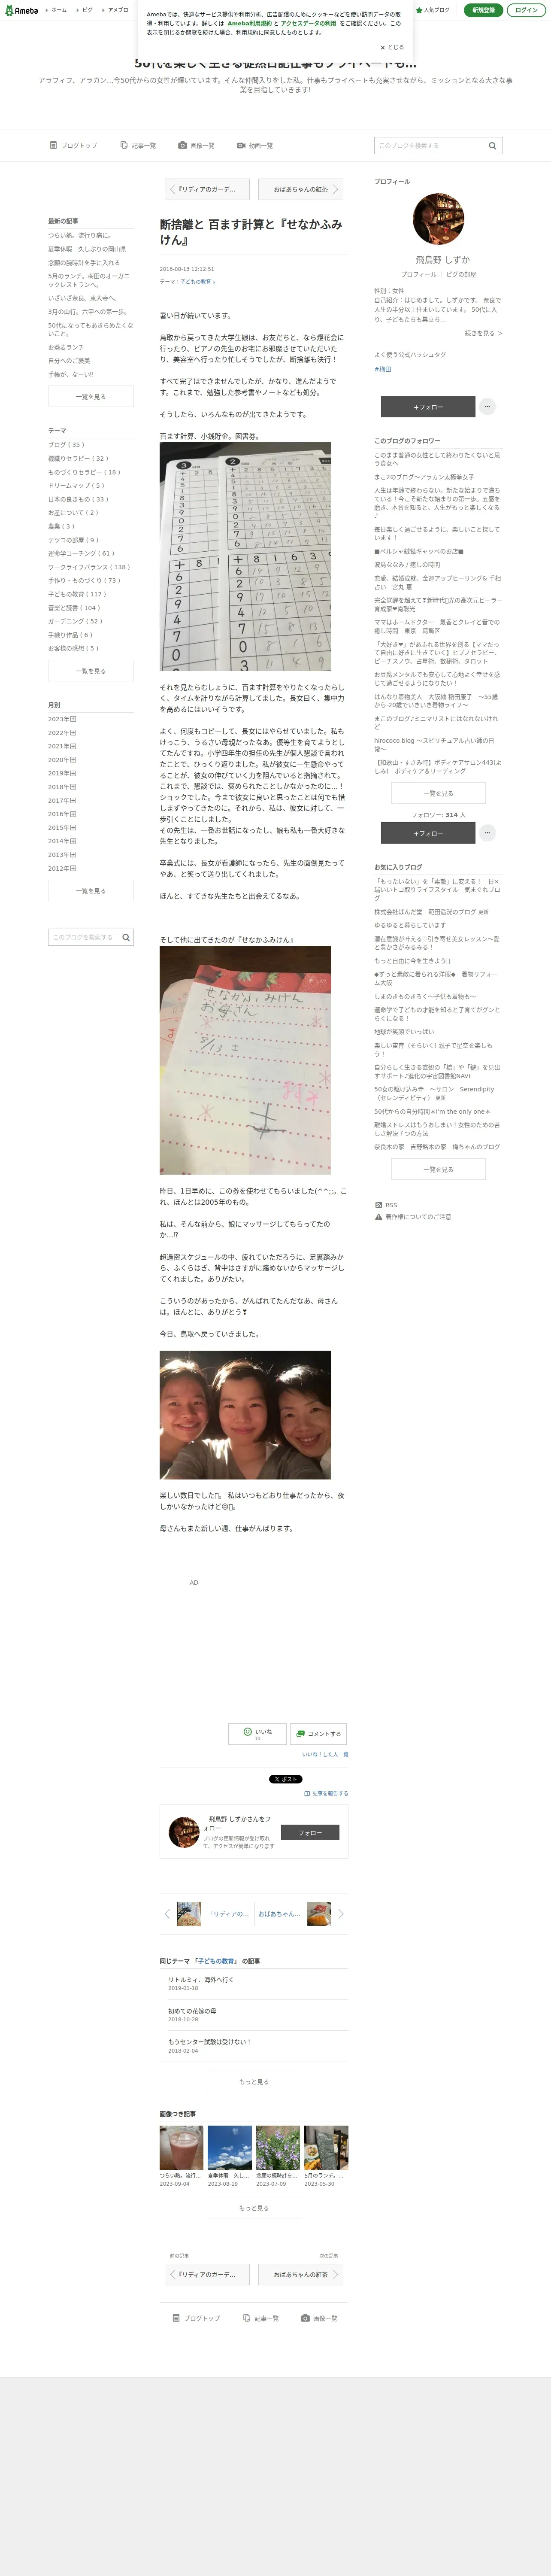 Ameba
ホーム
ピグ
アメブロ
人気ブログ
新規登録
ログイン
Amebaでは、快適なサービス提供や利用分析、広告配信のためにクッキーなどを使い訪問データの取
得・利用をしています。詳しくは Ameba利用規約 と アクセスデータの利用 をご確認ください。この
表示を閉じるか閲覧を続けた場合、利用規約に同意したものとします。
× とじる
50代を楽しく生きる徒然日記仕事もプライベートも…
アラフィフ、アラカン…今50代からの女性が輝いています。そんな仲間入りをした私。仕事もプライベートも充実させながら、ミッションとなる大きな事
業を目指していきます!
ブログトップ
記事一覧
画像一覧
動画一覧
このブログを検索する
最新の記事
つらい熱。流行り病に。
夏季休暇 久しぶりの岡山県
念願の腕時計を手に入れる
5月のランチ。梅田のオーガニ
ックレストランへ。
いざいざ奈良。東大寺へ。
3月の山行。六甲への第一歩。
50代になってもあきらめたくな
いこと。
お蕎麦ランチ
自分へのご褒美
手帳が、なーい!!
一覧を見る
テーマ
ブログ ( 35 )
機織りセラピー ( 32 )
ものづくりセラピー ( 18 )
ドリームマップ ( 5 )
日本の良きもの ( 33 )
お産について ( 2 )
農業 ( 3 )
テツコの部屋 ( 9 )
運命学コーチング ( 61 )
ワークライフバランス ( 138 )
手作り・ものづくり ( 73 )
子どもの教育 ( 117 )
音楽と読書 ( 104 )
ガーデニング ( 52 )
手織り作品 ( 6 )
お客様の感想 ( 5 )
一覧を見る
月別
2023年
2022年
2021年
2020年
2019年
2018年
2017年
2016年
2015年
2014年
2013年
2012年
一覧を見る
このブログを検索する
『リディアのガーデ…
おばあちゃんの紅茶
断捨離と 百ます計算と『せなかふみ
けん』
2016-08-13 12:12:51
テーマ：子どもの教育 」
暑い日が続いています。
鳥取から戻ってきた大学生娘は、お友だちと、なら燈花会に
行ったり、ピアノの先生のお宅にお邪魔させていただいた
り、美容室へ行ったり忙しそうでしたが、断捨離も決行！
すべて完了はできませんでしたが、かなり、進んだようで
す。これまで、勉強した参考書やノートなども分別。
そうしたら、いろんなものが出てきたようです。
百ます計算、小銭貯金。図書券。
それを見たらむしょうに、百ます計算をやりたくなったらし
く、タイムを計りながら計算してました。長女曰く、集中力
を高めるにはいいそうです。
よく、何度もコピーして、長女にはやらせていました。私も
けっこう、うるさい母親だったなあ。優等生を育てようとし
てたんだね。小学四年生の担任の先生が、個人懇談で言わ
れ、びっくりしたことは、彼女の伸びていく力を伸ばせない
ことが、彼女の伸びていく力を阻んでいると指摘されてこ
と。まさか、懇談でほめられたことしかなかったのに…！
ショックでした。今まで彼女に良いと思ったことは何でも惜
しまずやってきたのに。それから、彼女に対して、一歩、一
歩引くことにしました。
その先生は、一番お世話になった、娘も私も一番大好きな
先生となりました。
卒業式には、長女が看護師になったら、先生の面倒見たって
やあと、笑って送り出してくれました。
ほんと、すてきな先生たちと出会えてるなあ。
そして他に出てきたのが『せなかふみけん』
せなかふみけん
お母さん
昨日、1日早めに、この券を使わせてもらいました(^^;;。こ
れ、ほんとは2005年のもの。
私は、そんな前から、娘にマッサージしてもらってたの
か…!?
超過密スケジュールの中、疲れていただろうに、足裏踏みか
ら、ふくらはぎ、背中はさすがに踏めないからマッサージし
てくれました。ありがたい。
こういうのがあったから、がんばれてたんだなあ、母さん
は。ほんとに、ありがとう❣
今日、鳥取へ戻っていきました。
楽しい数日でした。 私はいつもどおり仕事だったから、夜
しかいなかったけど😣。
母さんもまた新しい週、仕事がんばります。
AD
いいね
10
コメントする
いいね！した人一覧
ポスト
記事を報告する
飛鳥野 しずかさんをフ
ォロー
ブログの更新情報が受け取れ
て、アクセスが簡単になります
フォロー
『リディアの…
おばあちゃん…
同じテーマ 「子どもの教育」 の記事
リトルミィ、海外へ行く
2019-01-18
初めての花嫁の母
2018-10-28
もうセンター試験は受けない！
2018-02-04
もっと見る
画像つき記事
つらい熱。流行…
2023-09-04
夏季休暇 久し…
2023-08-19
念願の腕時計を…
2023-07-09
5月のランチ。…
2023-05-30
もっと見る
前の記事
次の記事
『リディアのガーデ…
おばあちゃんの紅茶
ブログトップ
記事一覧
画像一覧
プロフィール
飛鳥野 しずか
プロフィール
ピグの部屋
性別：女性
自己紹介：はじめまして。しずかです。 奈良で
人生の半分以上住まいしています。 50代に入
り、子どもたちも巣立ち...
続きを見る ＞
よく使う公式ハッシュタグ
#梅田
+フォロー
このブログのフォロワー
このまま普通の女性として終わりたくないと思
う貴女へ
まこ2のブログ〜アラカン太極拳女子
人生は年齢で終わらない。新たな始まりで満ち
ている！今こそ新たな始まりの第一歩。五感を
磨き、本音を知ると、人生がもっと楽しくなる
♪
毎日楽しく過ごせるように、楽しいこと探して
います！
■ペルシャ絨毯ギャッベのお店■
波島ななみ / 癒しの時間
恋愛、結婚成就、金運アップヒーリング& 手相
占い 宮丸 恵
完全覚醒を超えて❣新時代光の高次元ヒーラー
育成家❤南聡光
ママはホームドクター 氣香とクレイと音での
癒し時間 東京 葛飾区
「大好き❤」があふれる世界を創る【ママだっ
て自由に好きに生きていく】ヒプノセラピー、
ピーチスノウ、占星術、数秘術、タロット
お豆腐メンタルでも安心して心地よく幸せを感
じて過ごせるようになりたい！
はんなり着物美人 大阪紬 稲田康子 〜55歳
から-20歳でいきいき着物ライフ〜
まこのブログ♪ミニマリストにはなれないけれ
ど
hirococo blog 〜スピリチュアル占い師の日
常〜
【和歌山・すさみ町】ボディケアサロン443(よ
しみ) ボディケア＆リーディング
一覧を見る
フォロワー: 314 人
+フォロー
お気に入りブログ
「もったいない」を「素敵」に変える！ 日✕
瑞いいトコ取りライフスタイル 気まぐれブロ
グ
株式会社ぱんだ堂 範田遥洸のブログ 更新
ゆるゆると暮らしています
潜在意識が叶える♡引き寄せ美女レッスン〜愛
と豊かさがみるみる！
もっと自由に今を生きよう
◆ずっと素敵に着られる洋服◆ 着物リフォー
ム大阪
しまのきものきろく〜子供も着物も〜
運命学で子どもの才能を知ると子育てがグンと
らくになる！
地球が笑顔でいっぱい
楽しい宙育（そらいく) 親子で星空を楽しも
う！
自分らしく生きる直観の「橋」や「鍵」を見出
すサポート♪進化の宇宙図書館NAVI
50女の駆け込み寺 〜サロン Serendipity
（セレンディピティ） 更新
50代からの自分時間＊I'm the only one＊
離婚ストレスはもうおしまい！女性のための苦
しさ解決７つの方法
奈良木の家 吉野銘木の家 梅ちゃんのブログ
一覧を見る
RSS
著作権についてのご注意